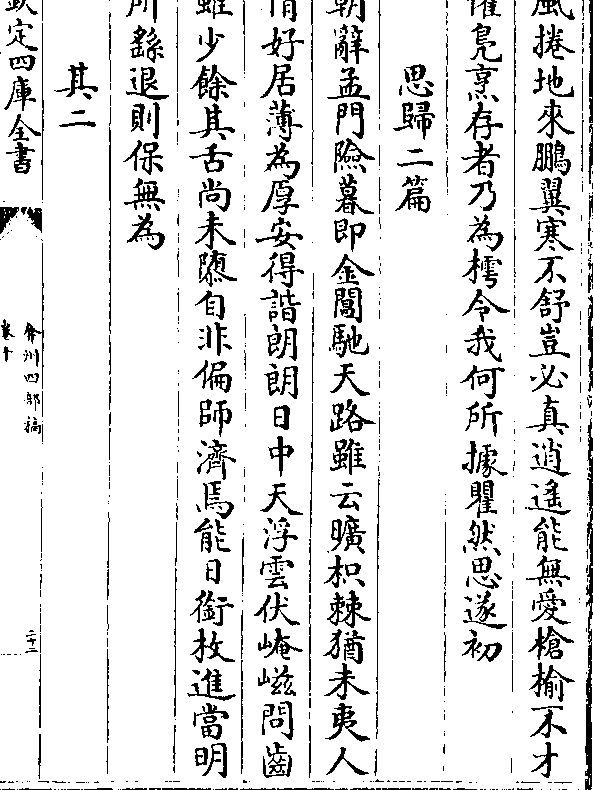 風捲地來鵬翼寒不舒豈必真逍遥能無愛槍榆不才
鳧烹存者乃為樗令我何所據瞿然思遂初
思歸二篇
朝辭孟門險暮即金閶馳天路雖云曠枳棘猶未夷人
情好居薄為厚安得諧朗朗日中天浮雲伏崦嵫問齒
雖少餘其舌尚未隳自非偏師濟焉能日銜枚進當明
所繇退則保無為
其二
欽定四庫全書
弇州四部稿
卷十
二十二